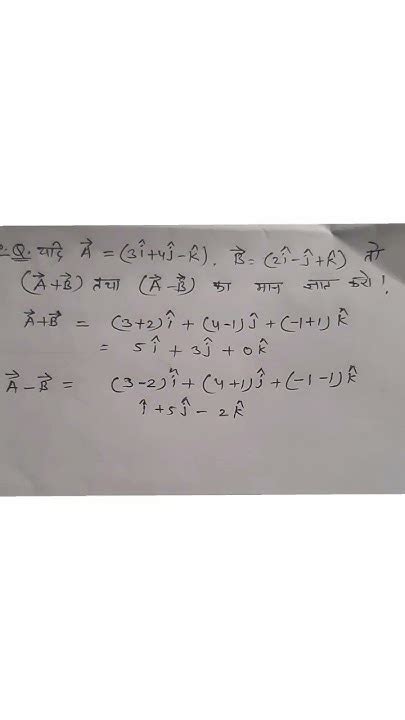 Q. यदि A⃗ = (3î+4ĵ-k̂). B⃗ = (2î-ĵ+k̂) तो
(A⃗+B⃗) तथा (A⃗-B⃗) का मान ज्ञात करो!
A⃗+B⃗ = (3+2)î + (4-1)ĵ + (-1+1)k̂
= 5î + 3ĵ + 0k̂
A⃗-B⃗ = (3-2)î + (4+1)ĵ + (-1-1)k̂
î+5ĵ-2k̂